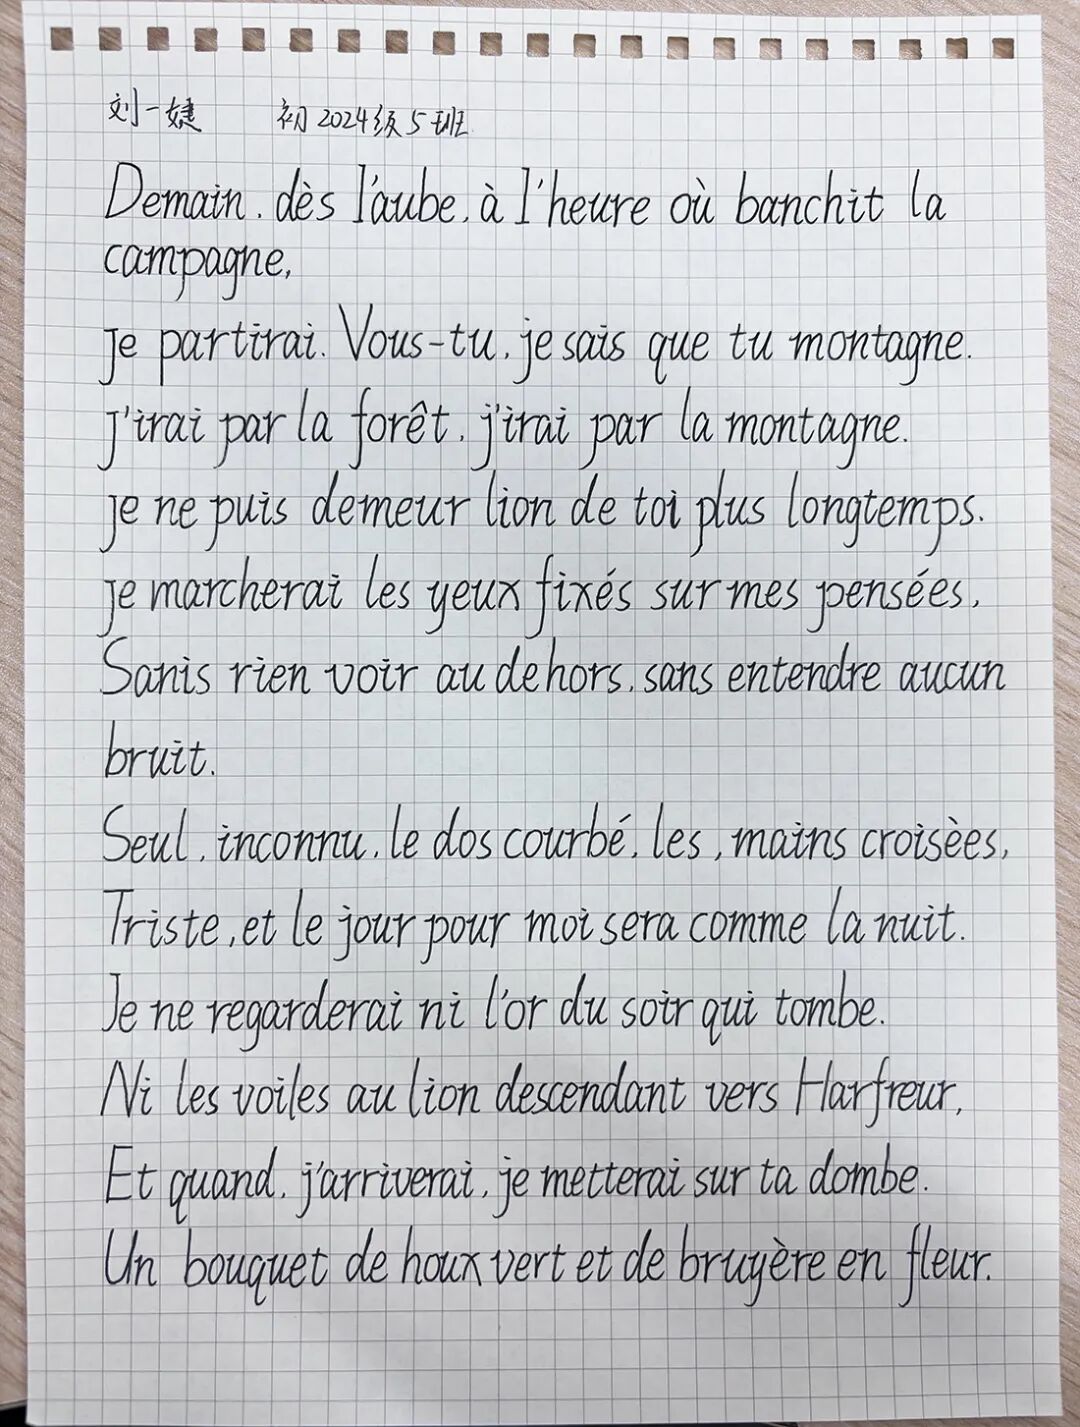 刘一婕 初2024级5班
Demain. dès l'aube. à l'heure où banchit la
campagne,
je partirai. Vous-tu. je sais que tu montagne.
j'irai par la forêt. j'irai par la montagne.
je ne puis demeur lion de toi plus longtemps.
je marcherai les yeux fixés sur mes pensées,
Sanis rien voir au dehors. sans entendre aucun
bruit.
Seul. inconnu. le dos courbé. les, mains croisèes,
Triste, et le jour pour moi sera comme la nuit.
Je ne regarderai ni l'or du soir qui tombe.
Ni les voiles au lion descendant vers Harfreur,
Et quand. j'arriverai. je metterai sur ta dombe.
Un bouquet de houx vert et de bruyère en fleur.